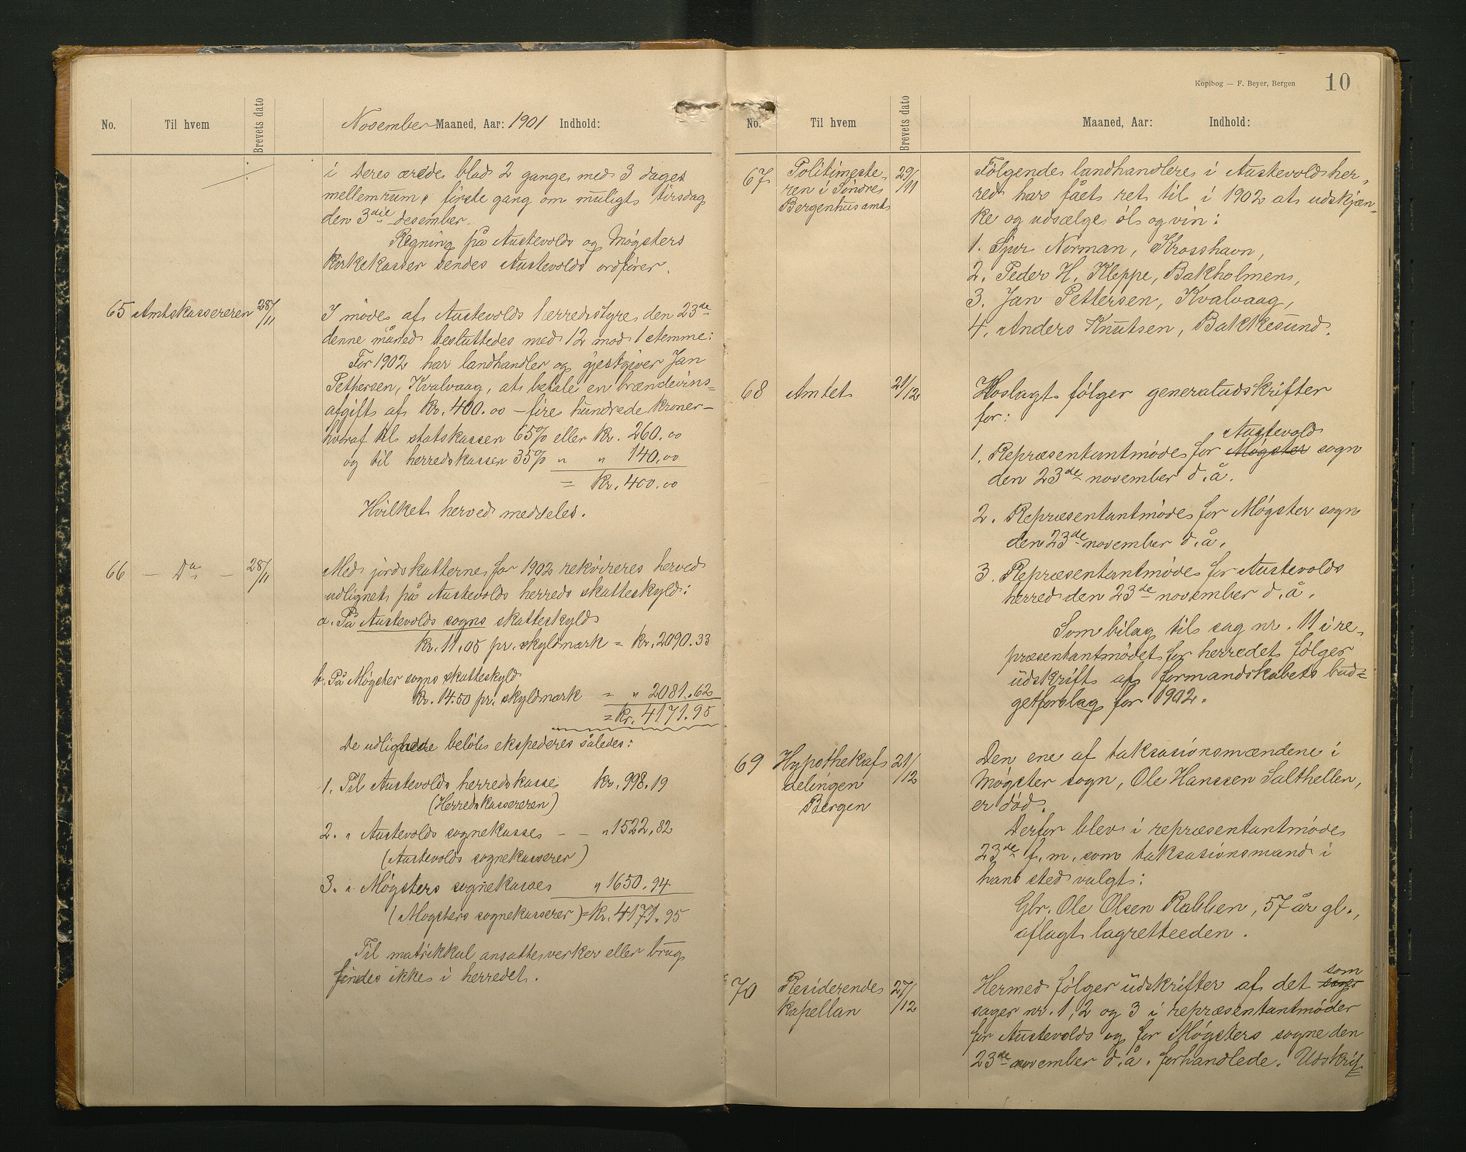 No.
Til hvem
Brevets dato
November Maaned, Aar: 1901 Indhold:
i Deres ærede blad 2 gange med 3 dages
mellemrum, første gang om muligt tirsdag
den 3die desember.
Regning på Austevolds og Møgsters
kirkekasser sendes Austevolds ordfører.
65 Amtskassereren 28/11 I møde af Austevolds herredsstyre den 23de
denne måned besluttedes med 12 mod 1 stemme:
For 1902 har landhandler og gjestgiver Jan
Pettersen, Kvalvaag, at betale en brændevins=
afgift af kr. 400.00 – fire hundrede kroner –
hvoraf til statskassen 65% eller kr. 260.00
og til herredskassen 35% " " 140.00
= kr. 400.00
Hvilket herved meddeles.
66 – Do – 28/11 Med jordskatterne for 1902 rekvireres herved
udlignet på Austevolds herreds skatteskyld:
a. På Austevolds sogns skatteskyld
kr. 11.05 pr. skyldmark = kr. 2090.33
b. På Møgster sogns skatteskyld
kr. 14.50 pr. skyldmark = " 2081.62
= kr. 4171.95
De udlignede beløb ekspederes således:
1. Til Austevolds herredskasse kr. 998.19
(Herredskassereren)
2. " Austevolds sognekasse – – " 1522.82
(Austevolds sognekasserer)
3. " Møgsters sognekasse " 1650.94
(Møgsters sognekasserer) = kr. 4171.95
Til matrikkul ansatte verker eller brug
findes ikke i herredet.
Kopibog — F. Beyer, Bergen
10
No.
Til hvem
Brevets dato
Maaned, Aar: Indhold:
67 Politimeste- 29/11 Følgende landhandlere i Austevolds her-
ren i Søndre red har fået ret til i 1902 at udskjæn-
Bergenhus amt ke og udsælge øl og vin:
1. Sjur Norman, Krosshavn,
2. Peder H. Kleppe, Bakholmen,
3. Jan Pettersen, Kvalvaag,
4. Anders Knutsen, Bakkesund.
68 Amtet 21/12 Hoslagt følger generaludskrifter
for:
Austevold
1. Repræsentantmøde for Møgster sogn
den 23de november d.å.
2. Repræsentantmøde for Møgster sogn
den 23de november d.å.
3. Repræsentantmøde for Austevolds
herred den 23de november d.å.
Som bilag til sag nr. 11 i re-
præsentantmødet for herredet følger
udskrift af formandskabets bud=
getforslag for 1902.
69 Hypothekaf- 21/12 Den ene af taksasionsmændene i
delingen Møgster sogn, Ole Hanssen Salthellen,
Bergen er død.
Derfor blev i repræsentantmøde
23de f.m. som taksasionsmand i
hans sted valgt:
Gbr. Ole Olsen Rabben, 57 år gl.,
aflagt lagretteeden.
70 Residerende 27/12 Hermed følger udskrifter af det som
kapellan sager nr. 1, 2 og 3 i repræsentantmøder
for Austevolds og for Møgsters sogne den
23de november d.å. forhandlede. Udskrif=